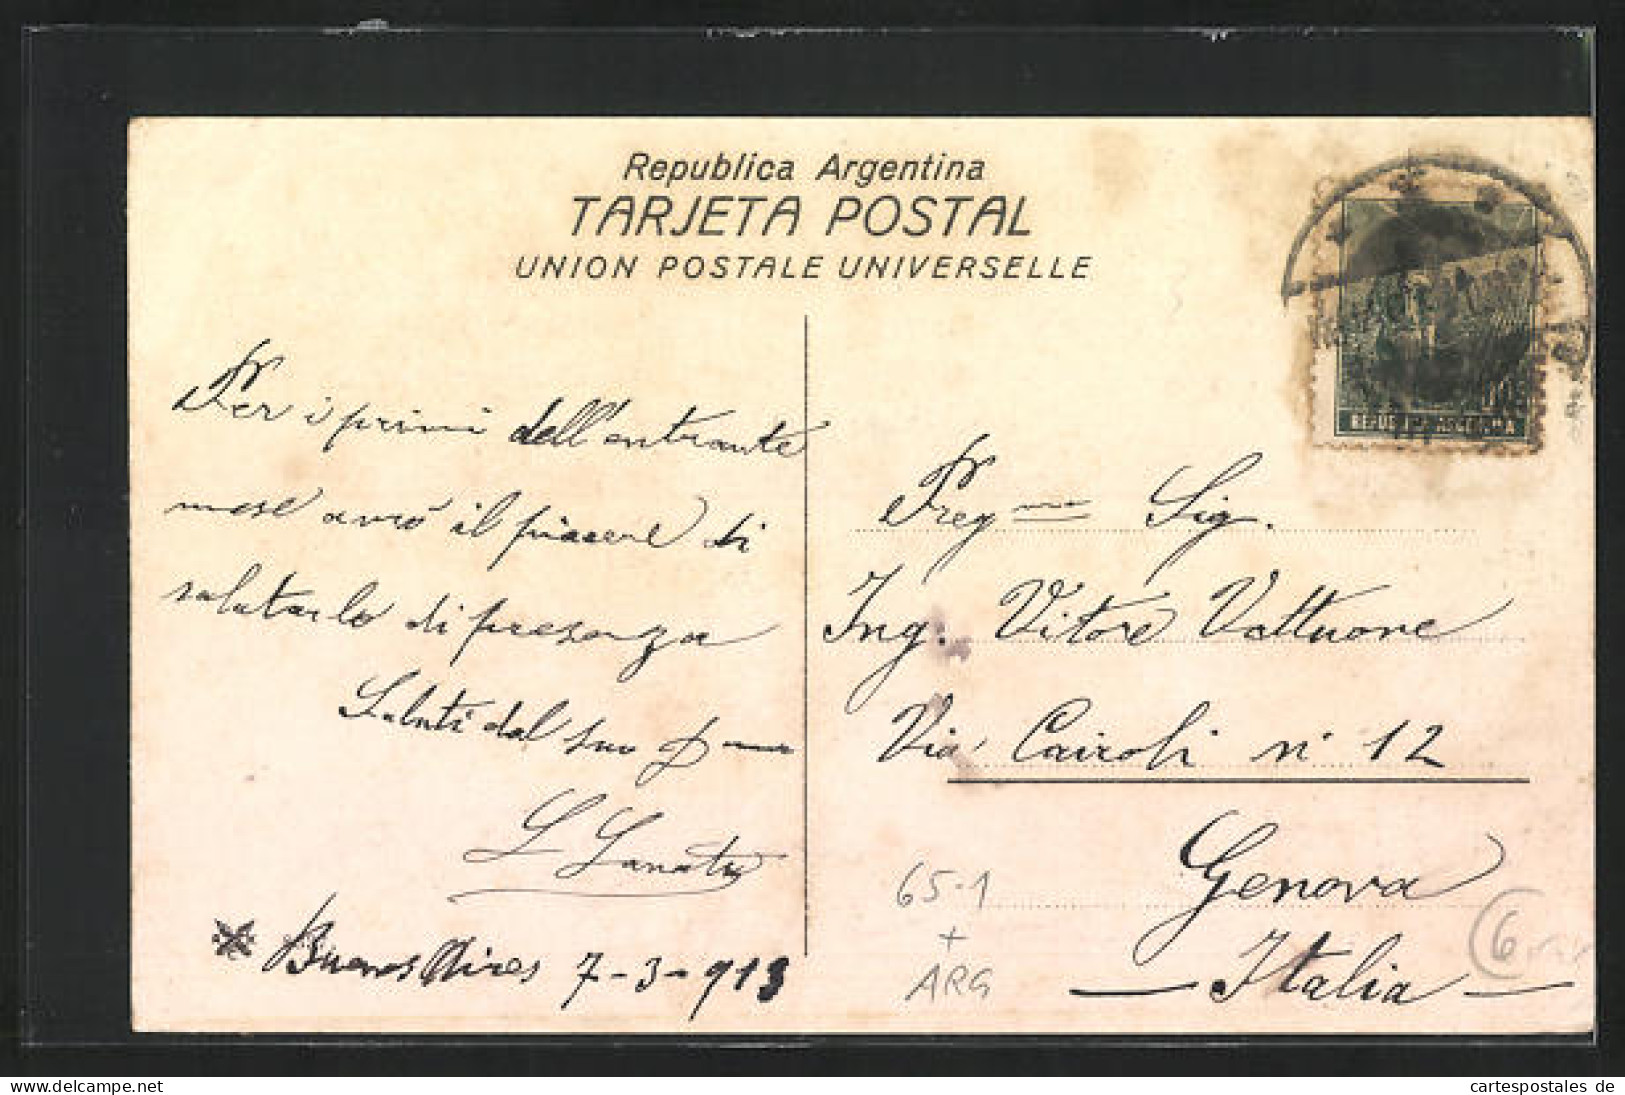 Republica Argentina
TARJETA POSTAL
UNION POSTALE UNIVERSELLE
Per i primi dell'entrante
mese avrò il piacere di
salutarlo di presenza
Saluti dal suo
L Lanata
Buenos Aires 7-3-913
REPUBLICA ARGENTINA
Preg.mo Sig.
Ing. Vitore Vattuone
Via Cairoli n° 12
Genova
Italia
65-1
+
ARG
6
akpool.de
cartespostales de